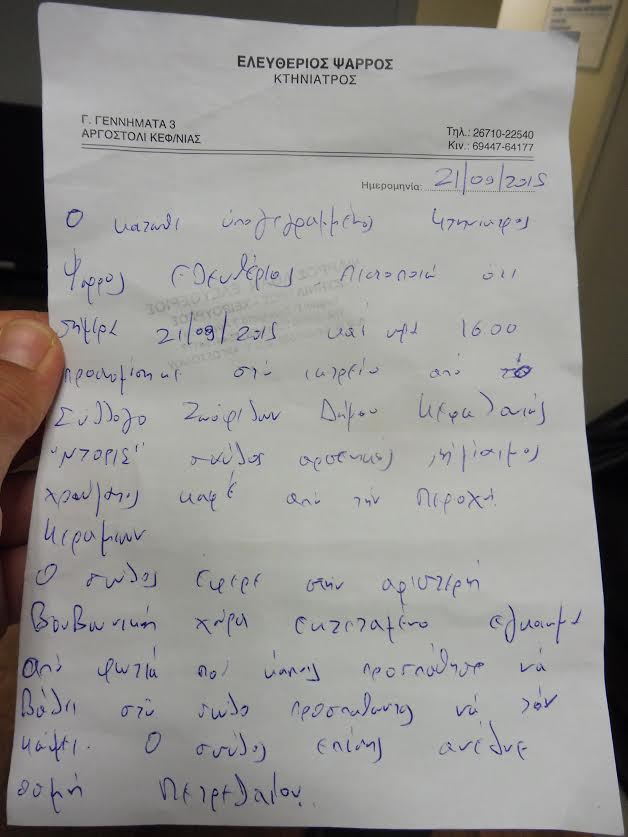 ΕΛΕΥΘΕΡΙΟΣ ΨΑΡΡΟΣ
ΚΤΗΝΙΑΤΡΟΣ
Γ. ΓΕΝΝΗΜΑΤΑ 3
ΑΡΓΟΣΤΟΛΙ ΚΕΦ/ΝΙΑΣ
Τηλ.: 26710-22540
Κιν.: 69447-64177
Ημερομηνία: 21/09/2015
Ο κάτωθι υπογεγραμμένος Κτηνίατρος
Ψαρρός Ελευθέριος Πιστοποιώ ότι
σήμερα 21/09/2015 και ώρα 16.00
προσκομίστηκε στο ιατρείο από το
Σύλλογο Ζωόφιλων Δήμου Κεφαλονιάς
"ΝΤΟΡΙΣ" σκύλος αρσενικός ημίαιμος
χρώματος καφέ από την Περιοχή
Κεραμειών
Ο σκύλος έφερε στην αριστερή
Βουβωνική χώρα εκτεταμένο έγκαυμα
από φωτιά που κάποιος προσπάθησε νά
βάλει στο σκύλο προσπαθώντας νά τον
κάψει. Ο σκύλος επίσης ανέδυε
οσμή Πετρελαίου.